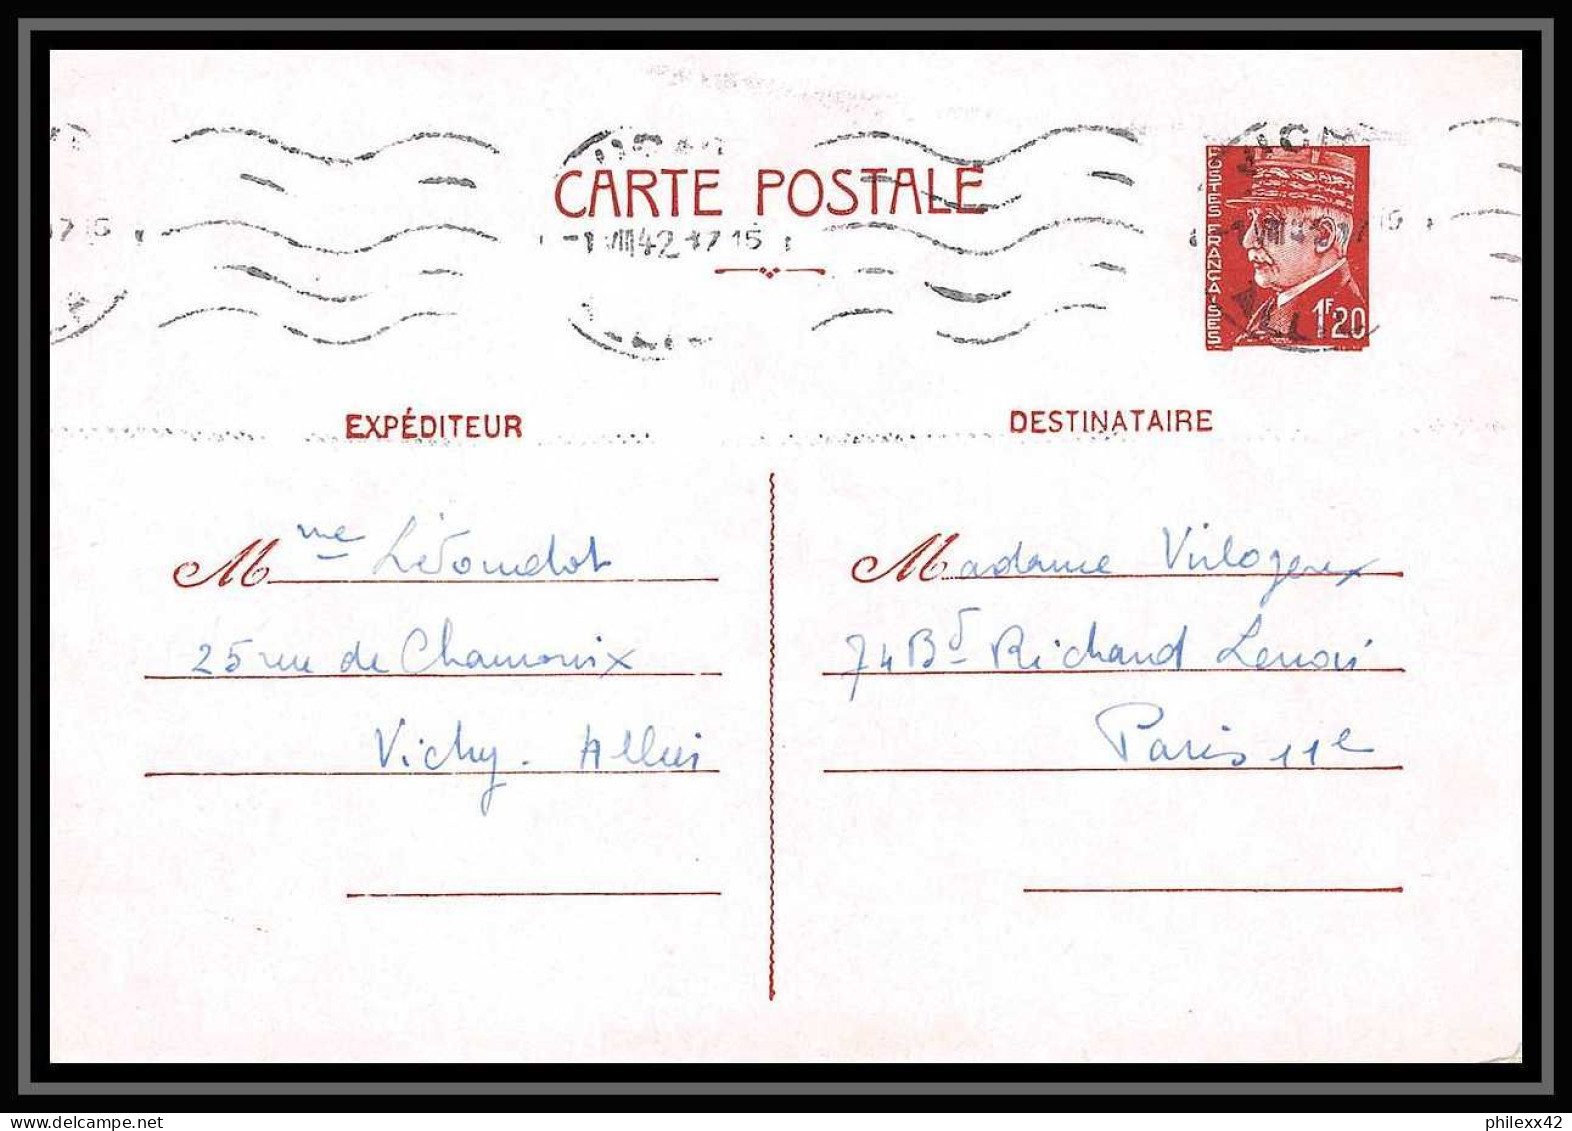 CARTE POSTALE
-1 VIII 42 17 15
POSTES FRANÇAISES
1F20
EXPÉDITEUR
DESTINATAIRE
Mme
25 rue de Chamonix
Vichy. Allier
Madame Virlogeux
74 Bd Richard Lenoir
Paris 11e
philexx42